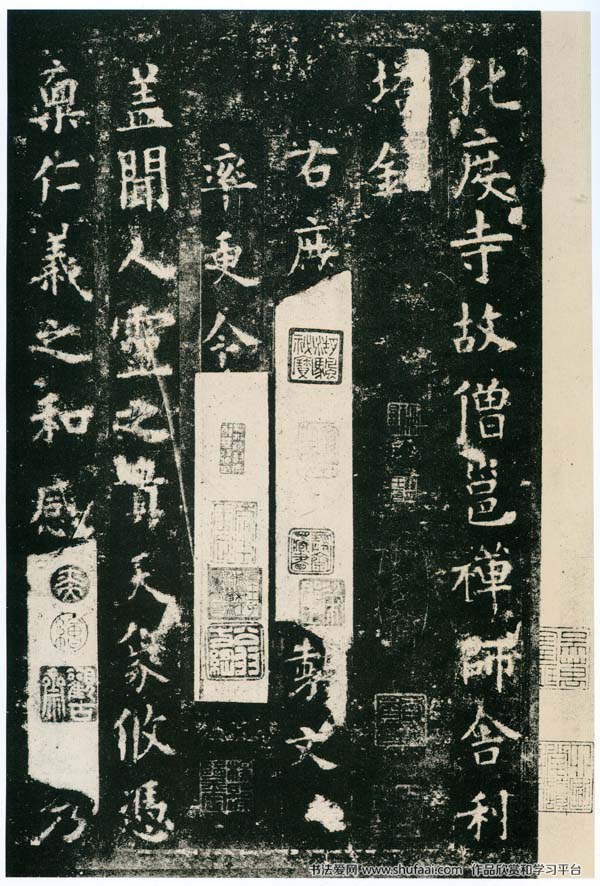 化度寺故僧邕禪師舍利
塔銘
右庶製文
率更令
蓋聞人靈之貴天象攸憑
稟仁義之和感乃
书法爱网 www.shufaai.com 作品欣赏和学习平台